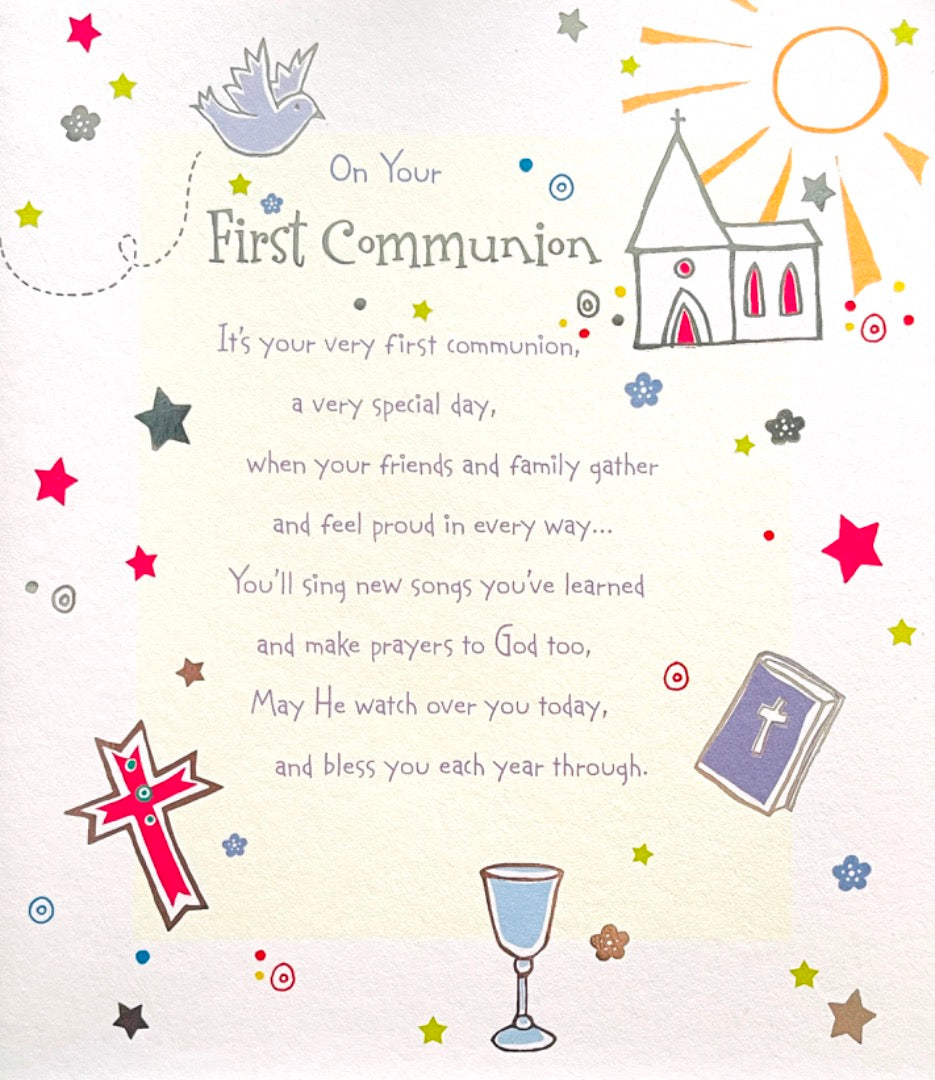 On Your
First Communion
It's your very first communion,
a very special day,
when your friends and family gather
and feel proud in every way...
You'll sing new songs you've learned
and make prayers to God too,
May He watch over you today,
and bless you each year through.